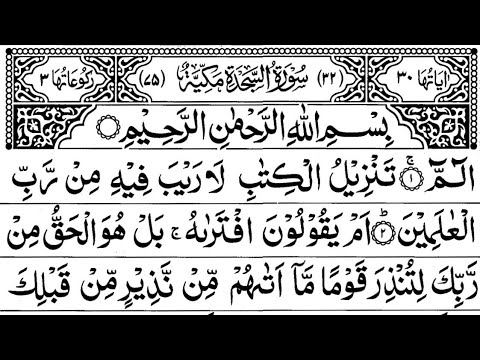 اٰیَاتُهَا ۳۰ (۳۲) سُوْرَةُ السَّجْدَةِ مَكِّیَّةٌ (۷۵) رُكُوْعَاتُهَا ۳
بِسْمِ اللهِ الرَّحْمٰنِ الرَّحِیْمِ
الٓمّٓ ۚ﴿۱﴾ تَنْزِیْلُ الْكِتٰبِ لَا رَیْبَ فِیْهِ مِنْ رَّبِّ
الْعٰلَمِیْنَ ؕ﴿۲﴾ اَمْ یَقُوْلُوْنَ افْتَرٰىهُ ۚ بَلْ هُوَ الْحَقُّ مِنْ
رَّبِّكَ لِتُنْذِرَ قَوْمًا مَّاۤ اَتٰىهُمْ مِّنْ نَّذِیْرٍ مِّنْ قَبْلِكَ